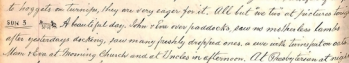 to hoggets on turnips, they are very eager for it. All but "we two" at pictures tonight
SUN 5 A beautiful day. John & Eve over paddocks, saw no motherless lambs
after yesterdays docking, saw many freshly dropped ones, a ewe with twins put on oats
Mum & Eva at Morning Church and at Uncles in afternoon. At Presbyterian at night